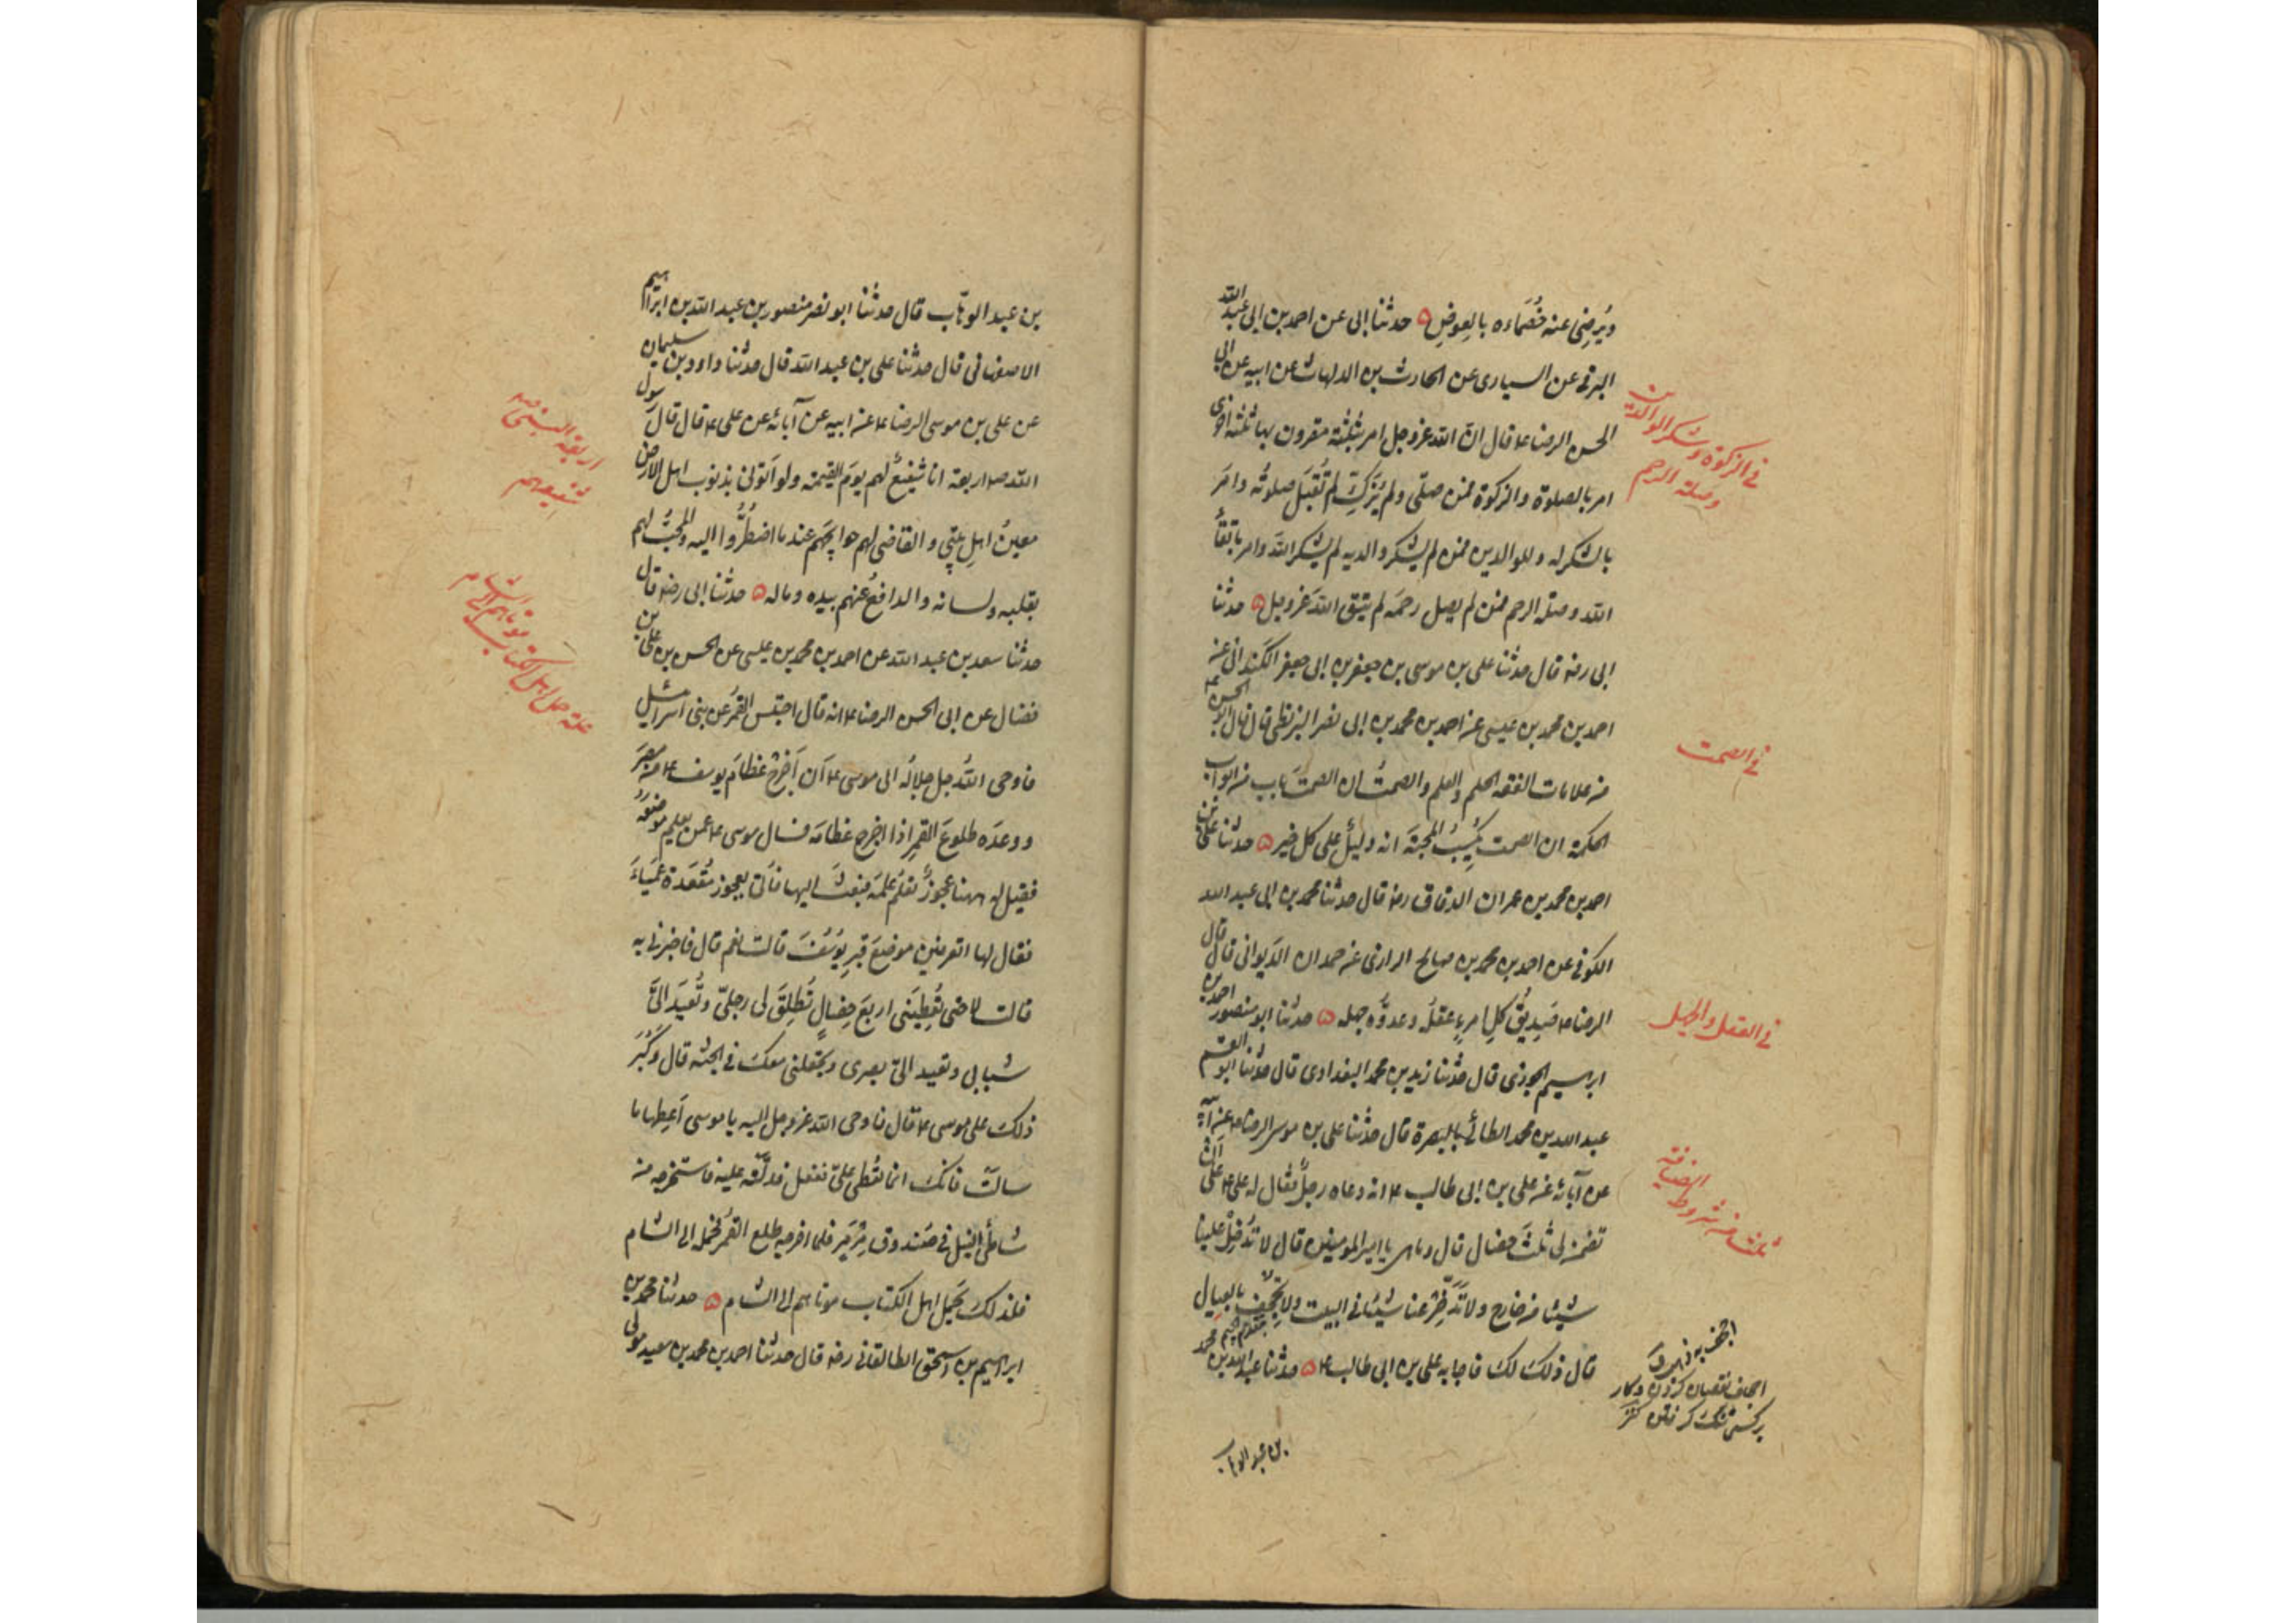 ويُرضِىَ عنه خُصَماءَه بالعِوضِ ۵ حدثنا ابى عن احمد بن ابى عبد الله
البرقى عن السيارى عن الحارث بن الدلهاث عن ابيه عن ابى
الحسن الرضا ع قال انّ الله عزوجل امر بثلثة مقرون بها ثلثة اخرى
امر بالصلوة والزكوة فمن صلّى ولم يُزَكِّ لم تُقبَل صلوته وامَر
بالشكر له وللوالدين فمن لم يشكر والديه لم يشكر الله وامر باتّقاء
الله وصلة الرحم فمن لم يصل رحمَه لم يتّق اللهَ عزوجل ۵ حدثنا
ابى رضه قال حدثنا على بن موسى بن جعفر بن ابى جعفر الكَمندانى عن
احمد بن محمد بن عيسى عن احمد بن محمد بن ابى نصر البزنطى قال قال ابو الحسن ع
من علامات الفقه الحلم والعلم والصمتُ ان الصمتَ باب من ابواب
الحكمة ان الصمت يُكسِبُ المحبّةَ انه دليلٌ على كل خير ۵ حدثنا على بن
احمد بن محمد بن عمران الدقاق رضه قال حدثنا محمد بن ابى عبد الله
الكوفى عن احمد بن محمد بن صالح الرازى عن حمدان الدَيوانى قال قال
الرضا ع صَدِيقُ كلِّ امرءٍ عقلُه وعدوُّه جهله ۵ حدثنا ابو منصور احمد بن
ابرهيم الخوزى قال حدثنا زيد بن محمد البغدادى قال حدثنا ابو القسم
عبد الله بن محمد الطائى بالبصرة قال حدثنا على بن موسى الرضا ع عن ابيه
عن آبائه عن على بن ابى طالب ع انه دعاه رجلٌ فقال له على ع على اَن
تضمن لى ثلثَ خصال قال وما هى يا امير المومنين قال لا تُدخِلْ علينا
شيئا من خارج ولا تدّخِرْ عنا شيئا فى البيت ولا تُجحِف بالعيال
قال ذلك لك فاجابه على بن ابى طالب ع ۵ حدثنا عبد الله بن محمد
بن عبد الوهاب
فى الزكوة وشكر الوالدين
وصلة الرحم
فى الصمت
فى العقل والجهل
ثلث من شروط
الضيافة
اجحف به ذهب به
اجحاف نقصان كردن و كار
بر كسى تنك كرفتن كنز
بن عبد الوهّاب قال حدثنا ابو نصر منصور بن عبد الله بن ابراهيم
الاصفهانى قال حدثنا على بن عبد الله قال حدثنا داود بن سليمان
عن على بن موسى الرضا ع عن ابيه عن آبائه عن على ع قال قال رسول
الله ص اربعة انا شفيعٌ لهم يومَ القيمة ولو اَتونى بذنوب اهل الارض
معينُ اهلِ بيتى والقاضى لهم حوايجَهم عند ما اضطُرُّوا اليه والمحبُّ لهم
بقلبه ولسانه والدافعُ عنهم بيده وماله ۵ حدثنا ابى رضه قال
حدثنا سعد بن عبد الله عن احمد بن محمد بن عيسى عن الحسن بن على بن
فضال عن ابى الحسن الرضا ع انه قال احتبس القمرُ عن بنى اسرائيل
فاوحى اللهُ جل جلالُه الى موسى ع اَن اَخرِجْ عظامَ يوسف ع من مصرَ
ووعدَه طلوعَ القمرِ اذا اخرج عظامَه فسال موسى ع عمن يعلم موضعَه
فقيل له ههنا عجوزٌ تعلَمُ علمَه فبعث اليها فاُتى بعجوز مُقعَدة عَمياءَ
فقال لها اتعرفين موضعَ قبرِ يوسفَ قالت نعم قال فاخبرنى به
قالت لا حتى تُعطِيَنى اربعَ خصالٍ تُطلِقَ لى رجلىّ وتُعيدَ الىَّ
شبابى وتعيد الىّ بصرى وتجعلنى معك فى الجنّة قال وكَبُرَ
ذلك على موسى ع قال فاوحى الله عزوجل اليه يا موسى اَعطِها ما
سالتْ فانك انما تُعطِى علىّ ففعل فدلّته عليه فاستخرجه من
شاطئ النيل فى صندوق مَرمَر فلما اخرجه طلع القمرُ فحمله الى الشام
فلذلك يَحمِل اهل الكتاب موتاهم الى الشام ۵ حدثنا محمد بن
ابراهيم بن اسحق الطالقانى رضه قال حدثنا احمد بن محمد بن سعيد مولى
اربعة النبى ص
شفيعهم
علة حمل اهل الكتاب
موتاهم الى الشام